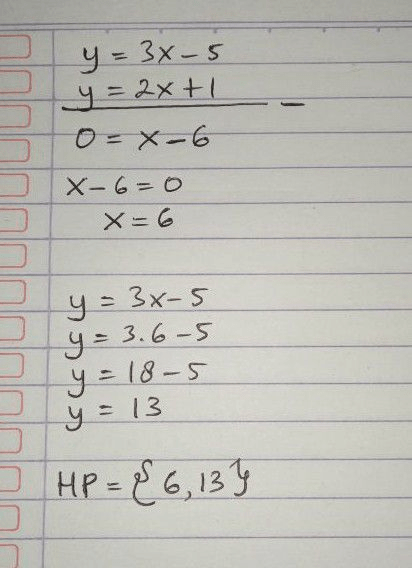 y = 3x - 5
y = 2x + 1 -
0 = x - 6
x - 6 = 0
x = 6
y = 3x - 5
y = 3.6 - 5
y = 18 - 5
y = 13
HP = {6, 13}